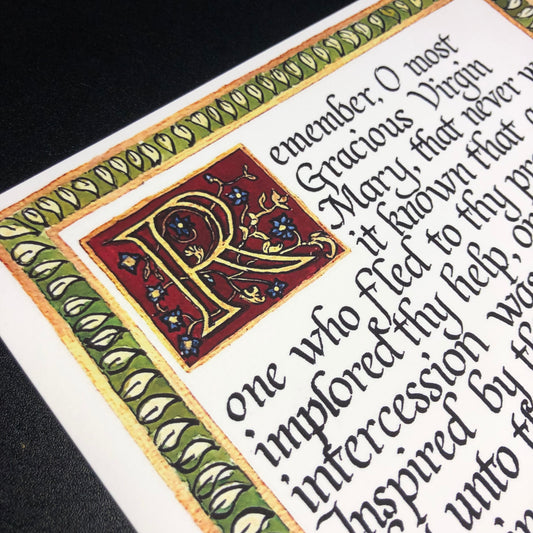 Remember, O most
Gracious Virgin
Mary, that never
it known that
one who fled to thy
implored thy help, or
intercession was
Inspired by
unto